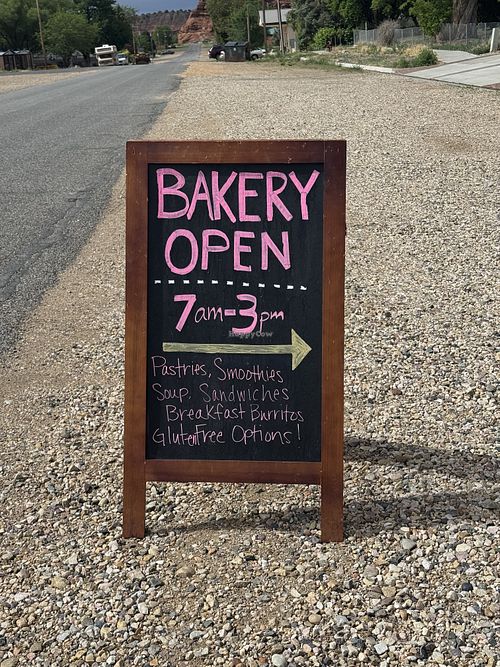 BAKERY
OPEN
7am-3pm
HappyCow
Pastries, Smoothies
Soup, Sandwiches
Breakfast Burritos
GlutenFree Options!